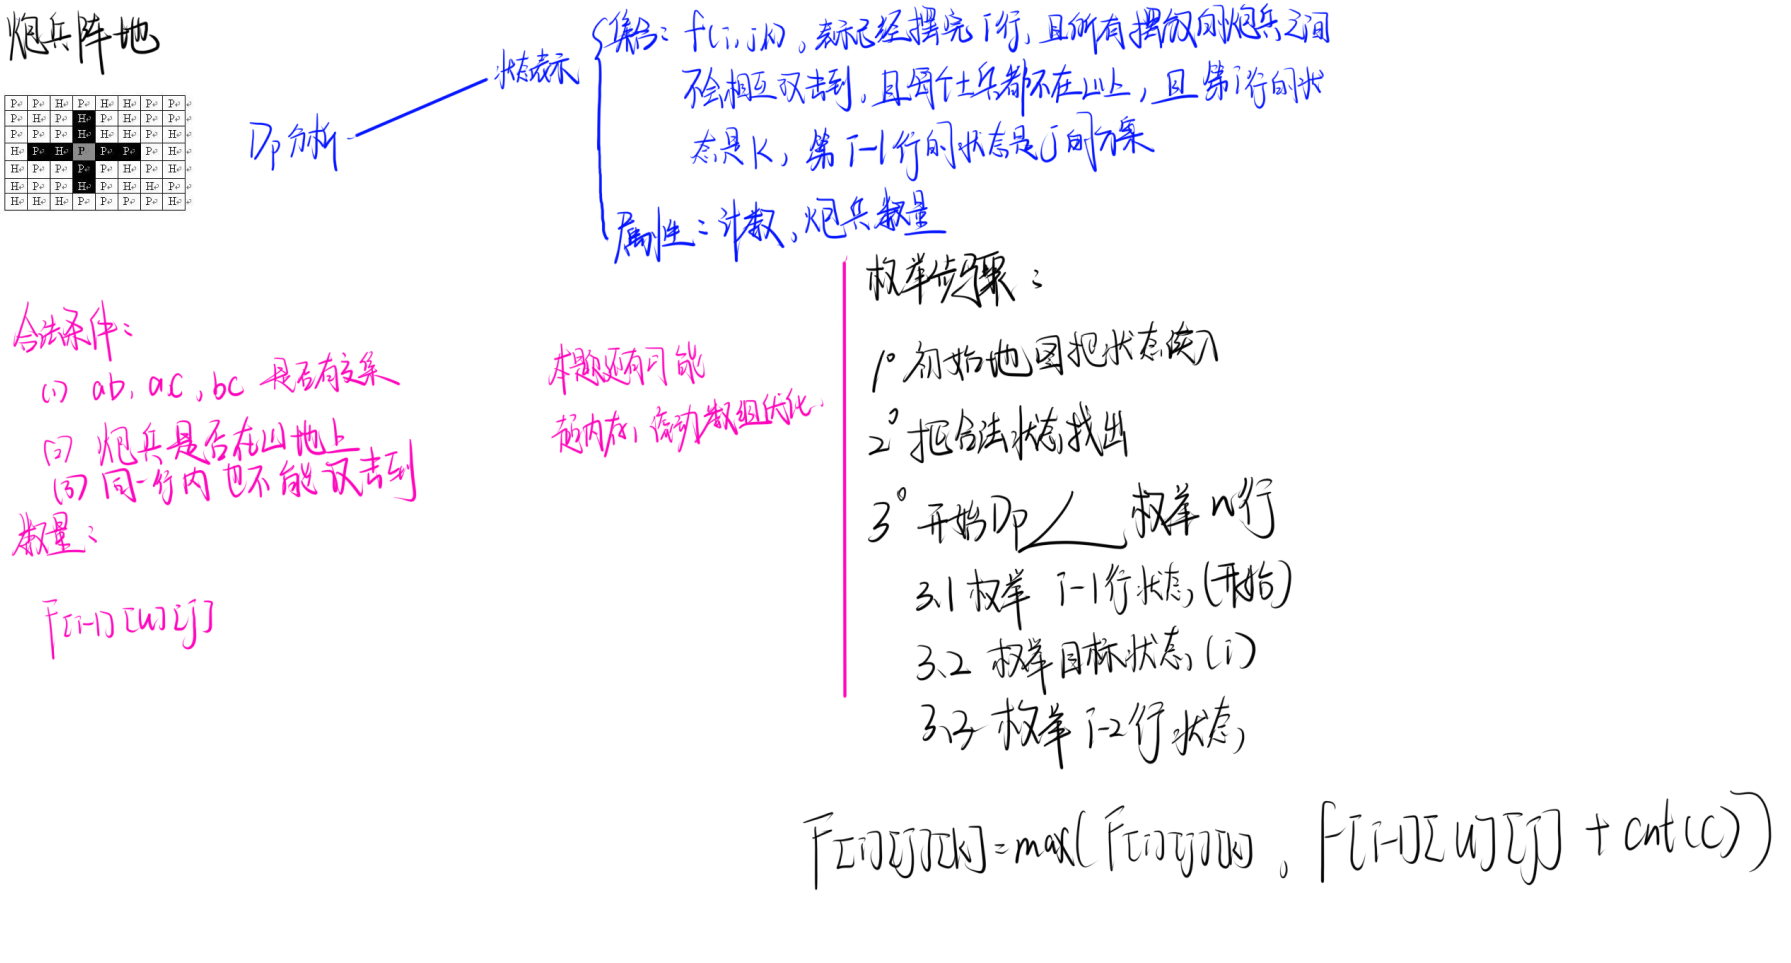 炮兵阵地
P P H P H H P P
P H P H P H P P
P P P H H H P H
H P H P P P P H
H P P P P H P H
H P P H P H H P
H H H P P P P H
Dp分析
状态表示
集合: f(i,j,k), 表示已经摆完i行, 且所有摆放的炮兵之间
不会相互攻击到, 且每个士兵都不在山上, 且第i行的状
态是K, 第i-1行的状态是j的方案
属性: 计数, 炮兵数量
合法条件:
(1) ab, ac, bc 是否有交集
(2) 炮兵是否在山地上
(3) 同一行内也不能攻击到
数量:
F[i-1][u][j]
本题还有可能
超内存, 滚动数组优化.
枚举步骤:
1° 初始地图把状态读入
2° 把合法状态找出
3° 开始Dp 枚举n行
3.1 枚举 i-1行状态 (开始)
3.2 枚举目标状态 (i)
3.3 枚举 i-2行状态
F[i][j][k]=max(F[i][j][k], F[i-1][u][j] + cnt(c))